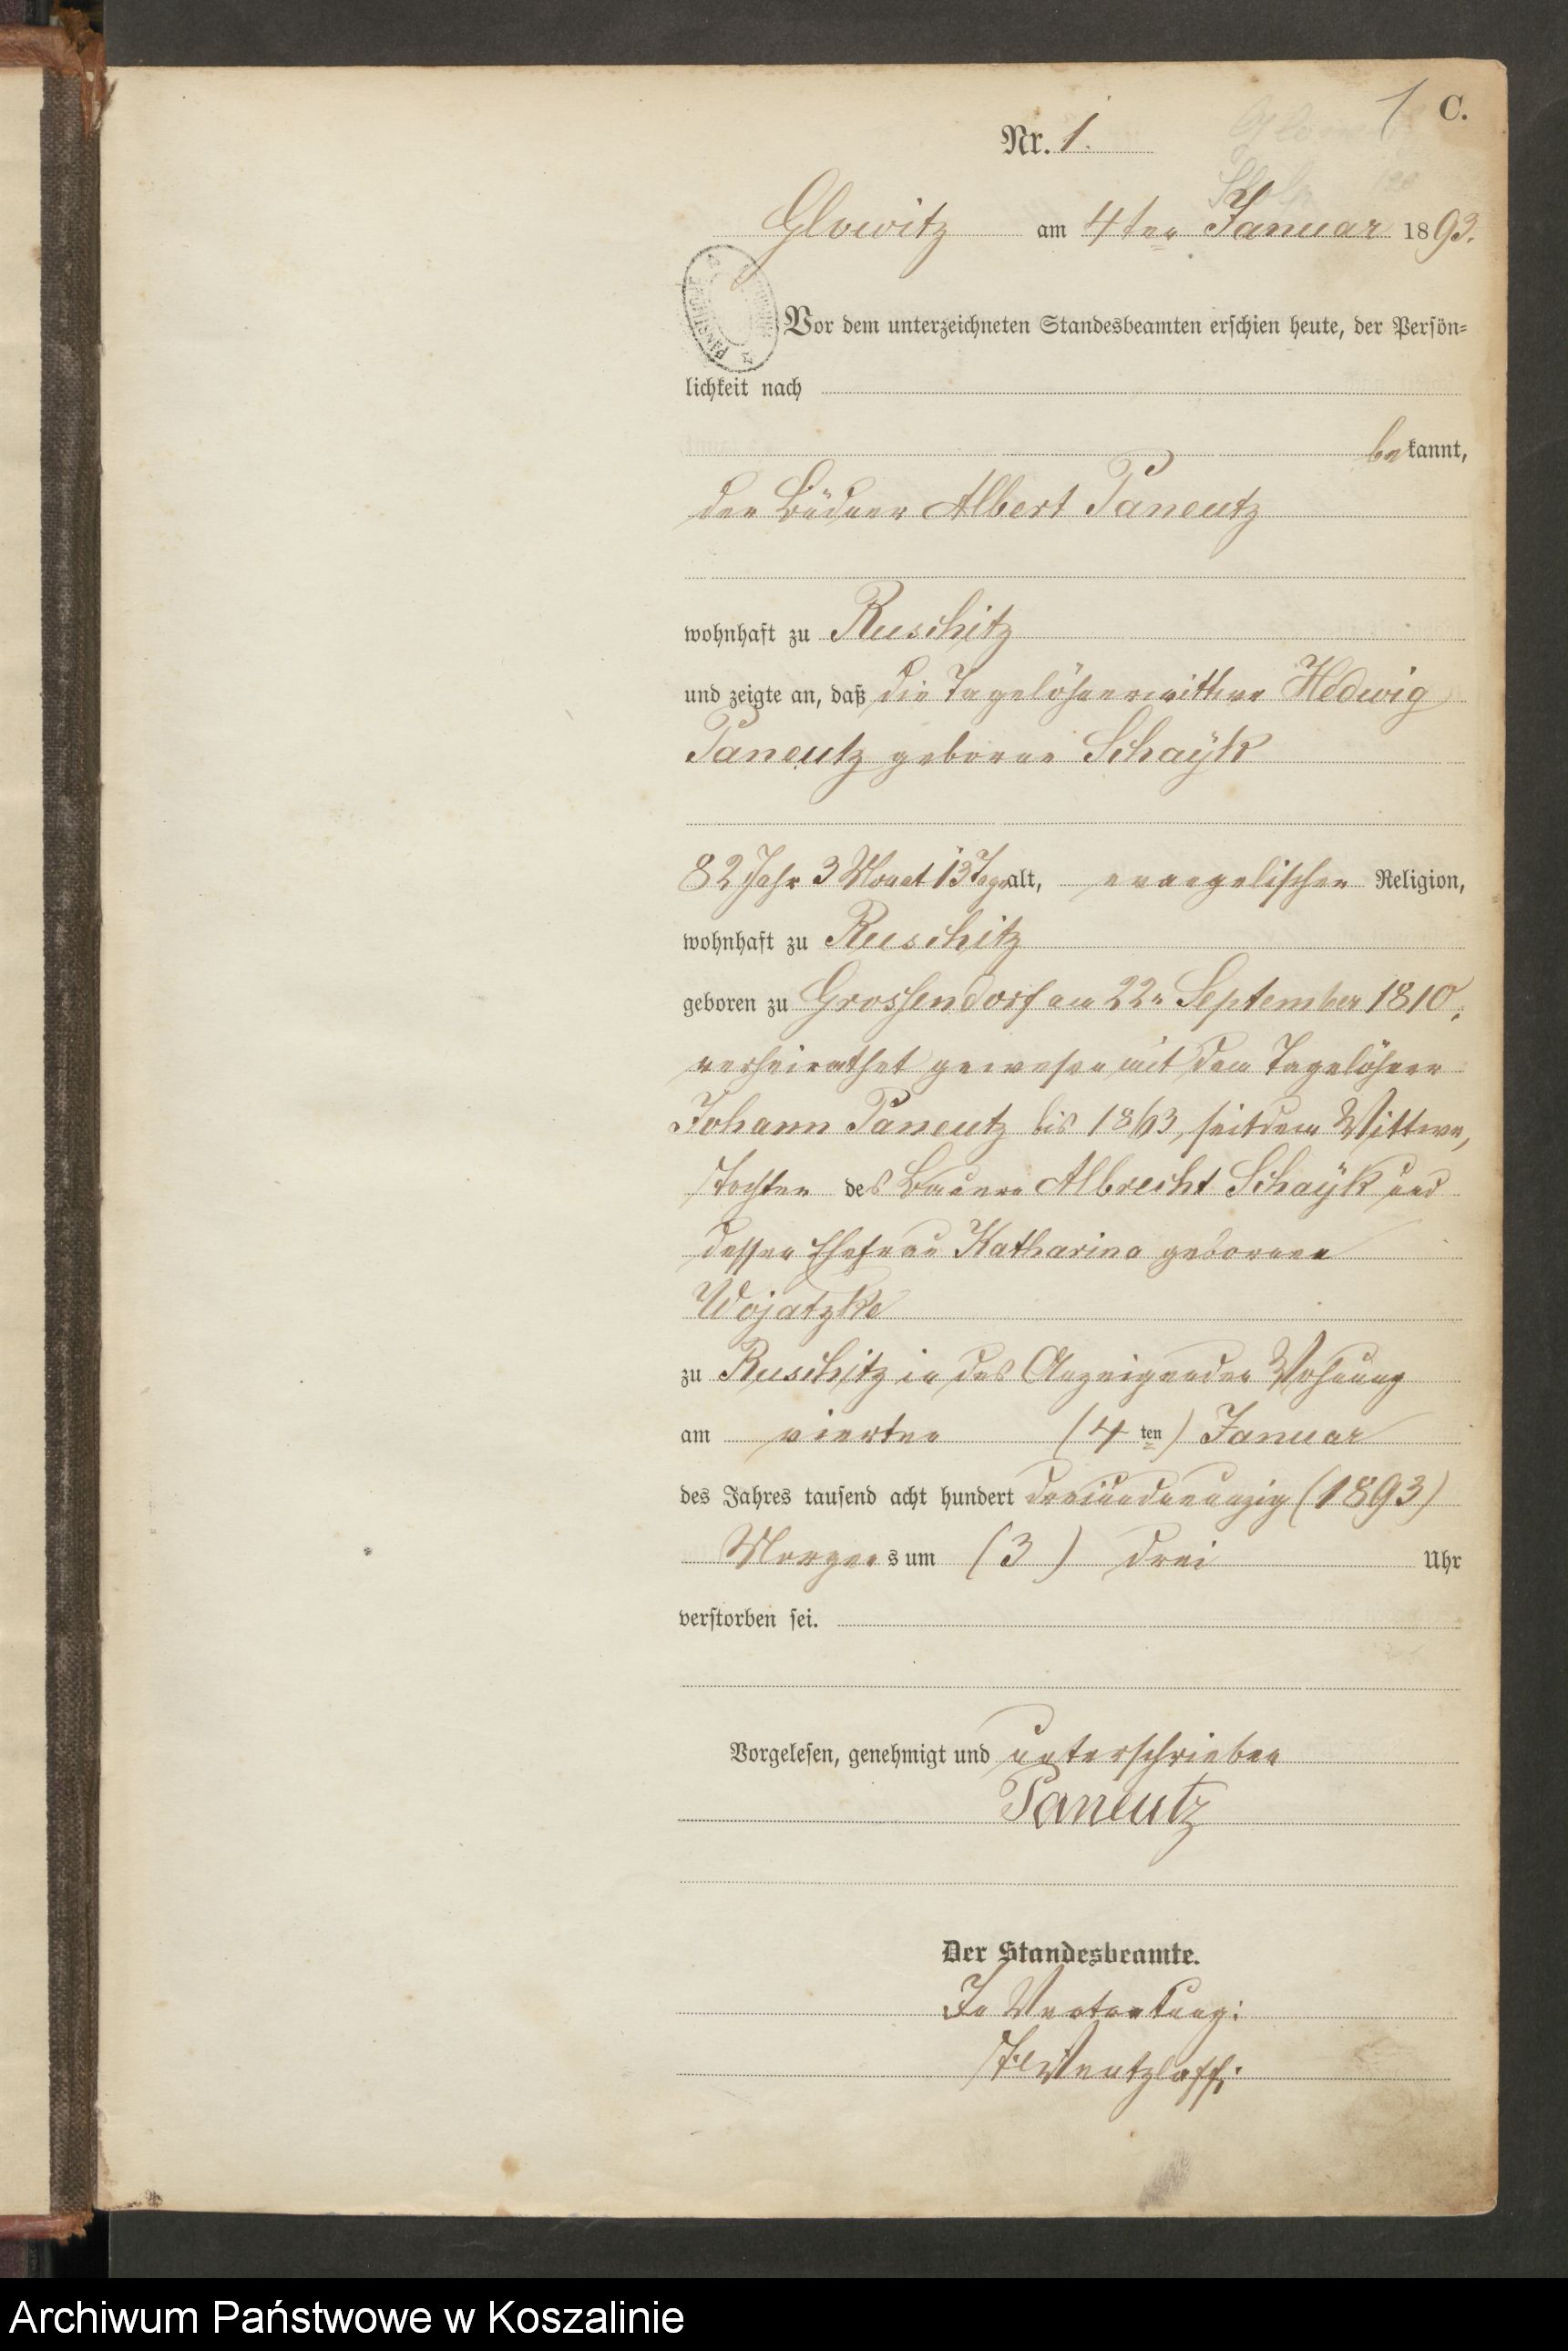 1 C.
Nr. 1.
Glowitz am 4ten Januar 1893.
Vor dem unterzeichneten Standesbeamten erschien heute, der Persön=
lichkeit nach
bekannt,
der Büdner Albert Paneutz
wohnhaft zu Ruschitz
und zeigte an, daß die Tagelöhnerwittwe Hedwig
Paneutz geborne Schaÿk
82 Jahr 3 Monat 13 Tage alt, evangelischer Religion,
wohnhaft zu Ruschitz
geboren zu Grossendorf am 22n September 1810,
verheirathet gewesen mit dem Tagelöhner
Johann Paneutz bis 1863, seitdem Wittwe,
Tochter des Bauern Albrecht Schaÿk und
dessen Ehefrau Katharina gebornen
Wojatzke
zu Ruschitz in des Anzeigenden Wohnung
am vierten (4 ten) Januar
des Jahres tausend acht hundert dreiundneunzig (1893)
Morgens um (3) drei Uhr
verstorben sei.
Vorgelesen, genehmigt und unterschrieben
Paneutz
Der Standesbeamte.
In Vertretung:
Wentzlaff.
Archiwum Państwowe w Koszalinie